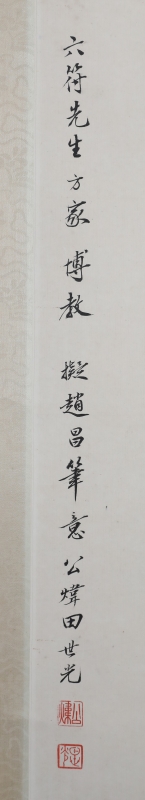 六符先生方家博教 擬趙昌筆意 公煒田世光
公煒